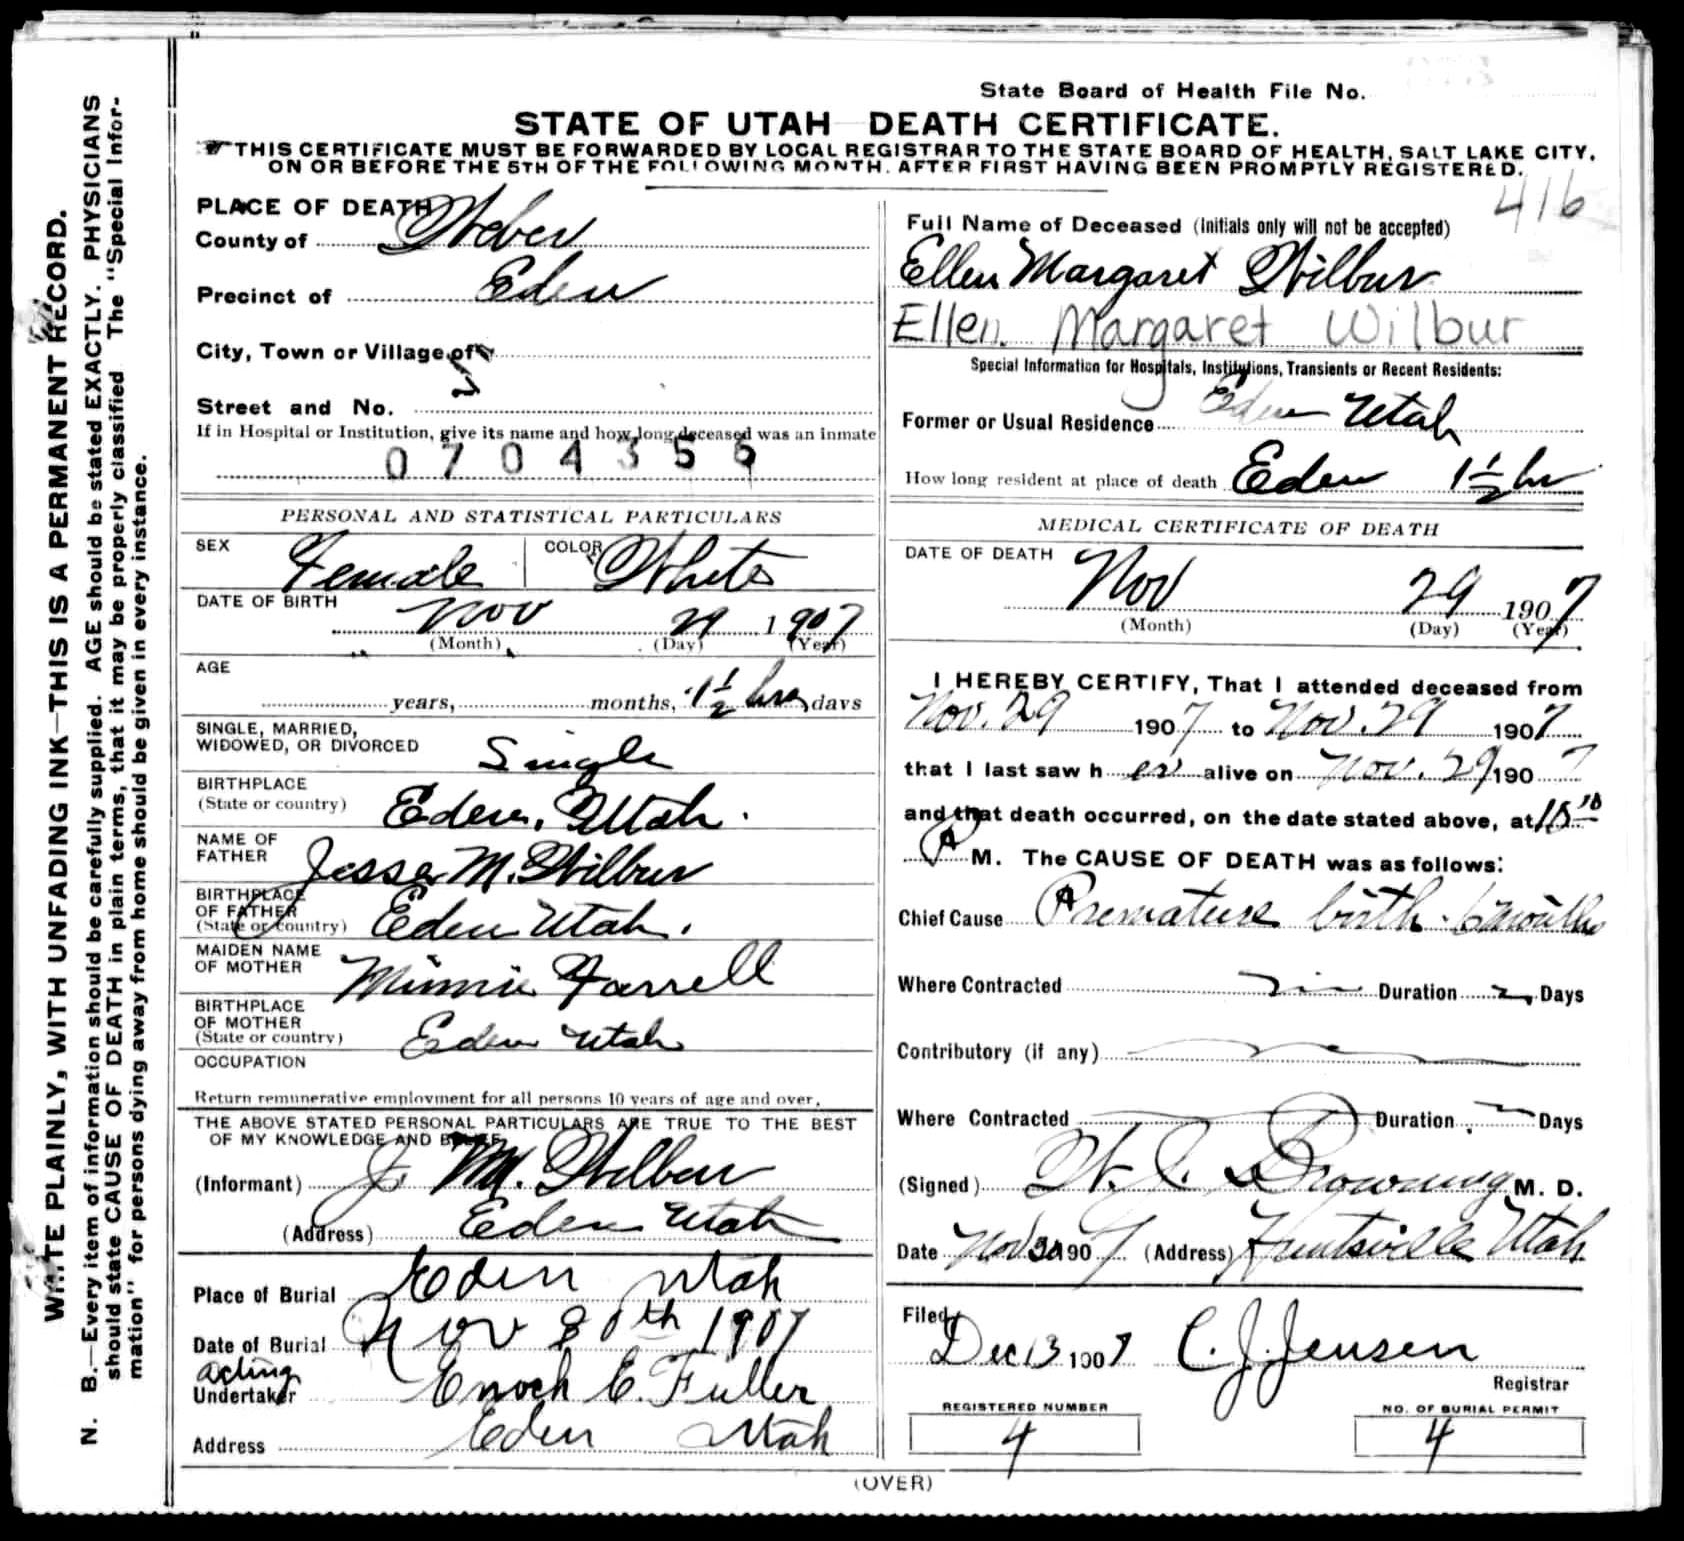 WRITE PLAINLY, WITH UNFADING INK—THIS IS A PERMANENT RECORD.
N. B.—Every item of information should be carefully supplied. AGE should be stated EXACTLY. PHYSICIANS
should state CAUSE OF DEATH in plain terms, that it may be properly classified The "Special Infor-
mation" for persons dying away from home should be given in every instance.
State Board of Health File No.
STATE OF UTAH DEATH CERTIFICATE.
THIS CERTIFICATE MUST BE FORWARDED BY LOCAL REGISTRAR TO THE STATE BOARD OF HEALTH, SALT LAKE CITY,
ON OR BEFORE THE 5TH OF THE FOLLOWING MONTH. AFTER FIRST HAVING BEEN PROMPTLY REGISTERED.
416
PLACE OF DEATH
County of Weber
Precinct of Eden
City, Town or Village of
Street and No.
If in Hospital or Institution, give its name and how long deceased was an inmate
0704355
PERSONAL AND STATISTICAL PARTICULARS
SEX Female COLOR White
DATE OF BIRTH Nov 29 1907
(Month) (Day) (Year)
AGE
years, months, 1½ hrs days
SINGLE, MARRIED,
WIDOWED, OR DIVORCED Single
BIRTHPLACE
(State or country) Eden, Utah.
NAME OF
FATHER Jesse M. Wilbur
BIRTHPLACE
OF FATHER
(State or country) Eden Utah.
MAIDEN NAME
OF MOTHER Minnie Farrell
BIRTHPLACE
OF MOTHER
(State or country) Eden Utah
OCCUPATION
Return remunerative employment for all persons 10 years of age and over.
THE ABOVE STATED PERSONAL PARTICULARS ARE TRUE TO THE BEST
OF MY KNOWLEDGE AND BELIEF
(Informant) J. M. Wilbur
(Address) Eden Utah
Place of Burial Eden Utah
Date of Burial Nov 30th 1907
acting
Undertaker Enoch E. Fuller
Address Eden Utah
Full Name of Deceased (Initials only will not be accepted)
Ellen Margaret Wilbur
Ellen Margaret Wilbur
Special Information for Hospitals, Institutions, Transients or Recent Residents:
Former or Usual Residence Eden Utah
How long resident at place of death Eden 1½ hr
MEDICAL CERTIFICATE OF DEATH
DATE OF DEATH Nov 29 1907
(Month) (Day) (Year)
I HEREBY CERTIFY, That I attended deceased from
Nov. 29 1907 to Nov. 29 1907
that I last saw her alive on Nov. 29 1907
and that death occurred, on the date stated above, at
M. The CAUSE OF DEATH was as follows:
Chief Cause Premature birth. 6 months
Where Contracted Duration Days
Contributory (if any)
Where Contracted Duration Days
(Signed) Browning M. D.
Date Nov 30 1907 (Address) Huntsville Utah
Filed
Dec 13 1907 C. J. Jensen
Registrar
REGISTERED NUMBER
4
NO. OF BURIAL PERMIT
4
(OVER)